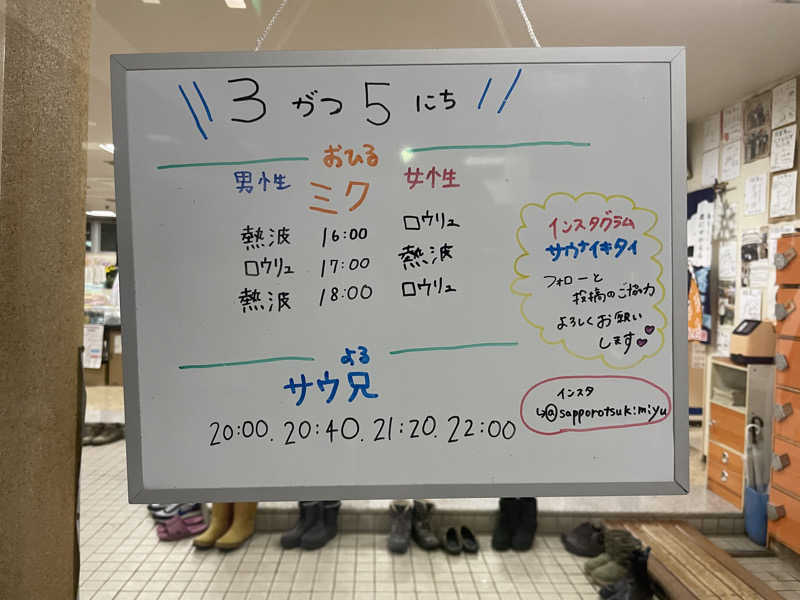 3がつ5にち
おひる
男性 ミク 女性
熱波 16:00 ロウリュ
ロウリュ 17:00 熱波
熱波 18:00 ロウリュ
よる
サウ兄
20:00. 20:40. 21:20. 22:00
インスタグラム
サウナイキタイ
フォローと
投稿のご協力
よろしくお願い
します
インスタ
↳@sapporotsukimiyu